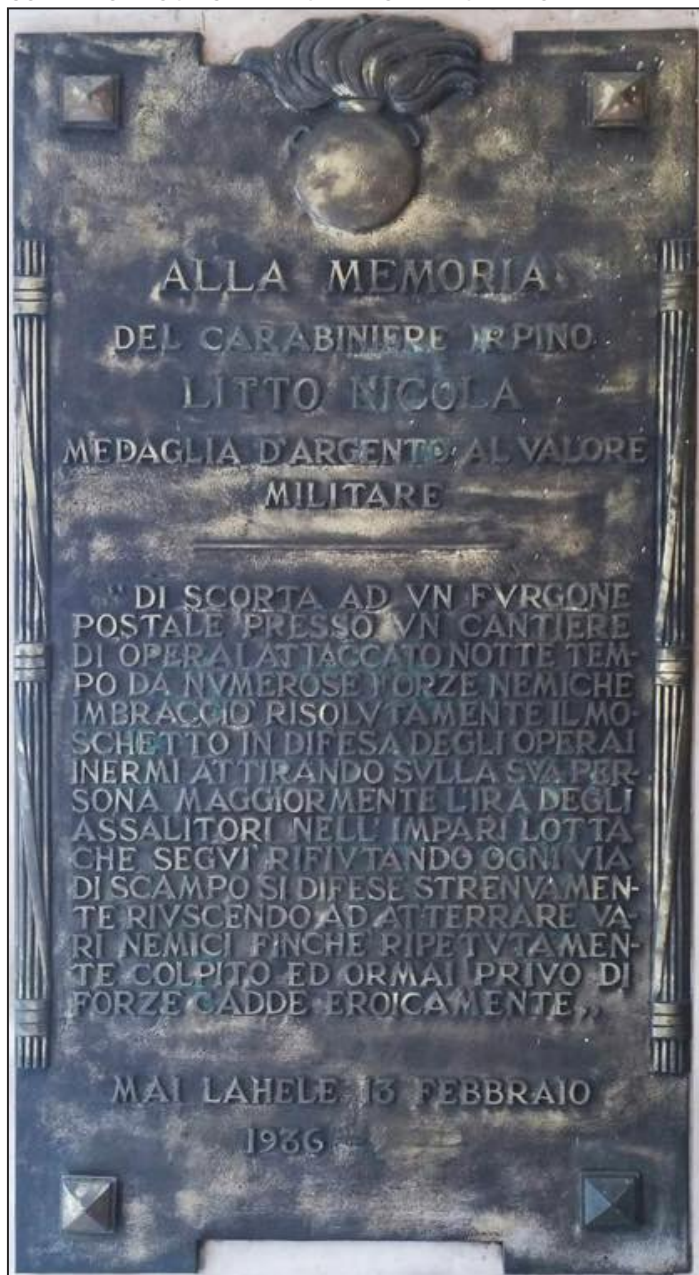 ALLA MEMORIA
DEL CARABINIERE IRPINO
LITTO NICOLA
MEDAGLIA D'ARGENTO AL VALORE
MILITARE
"DI SCORTA AD VN FVRGONE
POSTALE PRESSO VN CANTIERE
DI OPERAI ATTACCATO NOTTE TEM-
PO DA NVMEROSE FORZE NEMICHE
IMBRACCIÒ RISOLVTAMENTE IL MO-
SCHETTO IN DIFESA DEGLI OPERAI
INERMI ATTIRANDO SVLLA SVA PER-
SONA MAGGIORMENTE L'IRA DEGLI
ASSALITORI NELL'IMPARI LOTTA
CHE SEGVÌ RIFIVTANDO OGNI VIA
DI SCAMPO SI DIFESE STRENVAMEN-
TE RIVSCENDO AD ATTERRARE VA-
RI NEMICI FINCHE RIPETVTAMEN-
TE COLPITO ED ORMAI PRIVO DI
FORZE CADDE EROICAMENTE„
MAI LAHELE 13 FEBBRAIO
1936